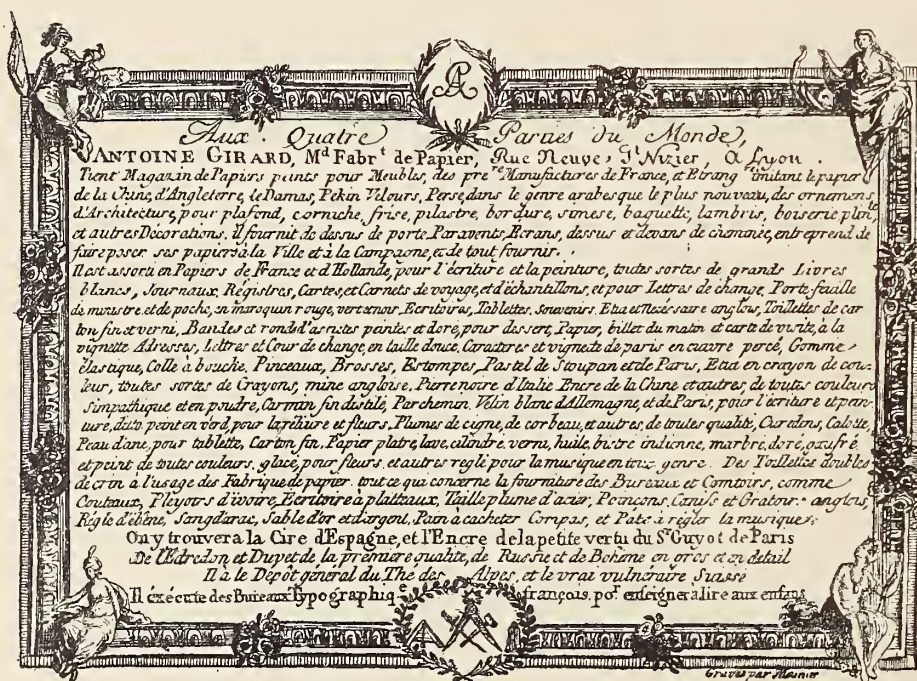 Aux Quatre Parties du Monde,
ANTOINE GIRARD, Md Fabrt de Papier, Rue Neuve, St Nizier, A Lyon.
Tient Magazin de Papiers peints pour Meubles, des pres Manufactures de France, et Etrangres imitant le papier
de la Chine, d'Angleterre, le Damas, Pekin Velours, Perse, dans le genre arabesque le plus nouveau, des ornemens
d'Architetture, pour plafond, corniche, frise, pilastre, bordure, simese, baguette, lambris, boiserie plinte
et autres Décorations, il fournit de dessus de porte Paravents, Ecrans, dessus et devans de cheminée, entreprend de
faire poser ses papiers à la Ville et à la Campagne, et de tout fournir.
Il est assorti en Papiers de France et d'Hollande, pour l'écriture et la peinture, toutes sortes de grands Livres
blancs, Journaux, Régistres, Cartes, et Carnets de voyage, et d'échantillons, et pour Lettres de change, Porte feuille
de ministre et de poche, en maroquin rouge, vert et noir, Ecritoires, Tablettes, souvenirs. Etui et Nécéssaire anglois, Toillettes de car
ton fin et verni, Bandes et rond d'assietes peintes et doré, pour dessert, Papier, billet du matin et carte de visite, à la
vignette Adresses, Lettres et Cour de change, en taille douce, Caracteres et vignete de paris en cuivre percé, Gomme
élastique, Colle à bouche, Pinceaux, Brosses, Estompes, Pastel de Stoupan et de Paris, Etui en crayon de cou=
leur, toutes sortes de Crayons, mine angloise, Pierre noire d'Italie Encre de la Chine et autres, de toutes couleurs
Simpathique et en poudre, Carmin fin distilé, Parchemin, Vélin blanc d'Allemagne, et de Paris, pour l'écriture et pein=
ture, ditto peint en verd, pour la réliure et fleurs, Plumes de cigne, de corbeau, et autres, de toutes qualité, Curedens, Calotte,
Peau d'ane, pour tablette, Carton fin, Papier platre, lavé, cilindré, verni, huilé, bistré indienne, marbré, doré, gaufré
et peint de toutes couleurs, glacé, pour fleurs, et autres reglé pour la musique en tous genre. Des Toillettes doubles
de crin à l'usage des Fabrique de papier. tout ce qui concerne la fourniture des Bureaux et Comtoirs, comme
Couteaux, Pléyoirs d'ivoire, Ecritoire à platteaux, Taille plume d'acier, Poinçons, Canifs et Gratoirs anglois,
Régle d'ébéne, Sangdarac, Sable d'or et d'argent, Pain à cacheter Compas, et Pate à régler la musique
On y trouvera la Cire d'Espagne, et l'Encre de la petite vertu du Sr Guyot de Paris
De L'Edredon et Duvet de la première qualité, de Russie et de Bohème en gros et en détail
Il à le Dépôt général du Thé des Alpes, et le vrai vulnéraire Suisse
Il éxécute des Bureaux Typographiq françois, por enseigner à lire aux enfans
Gravés par